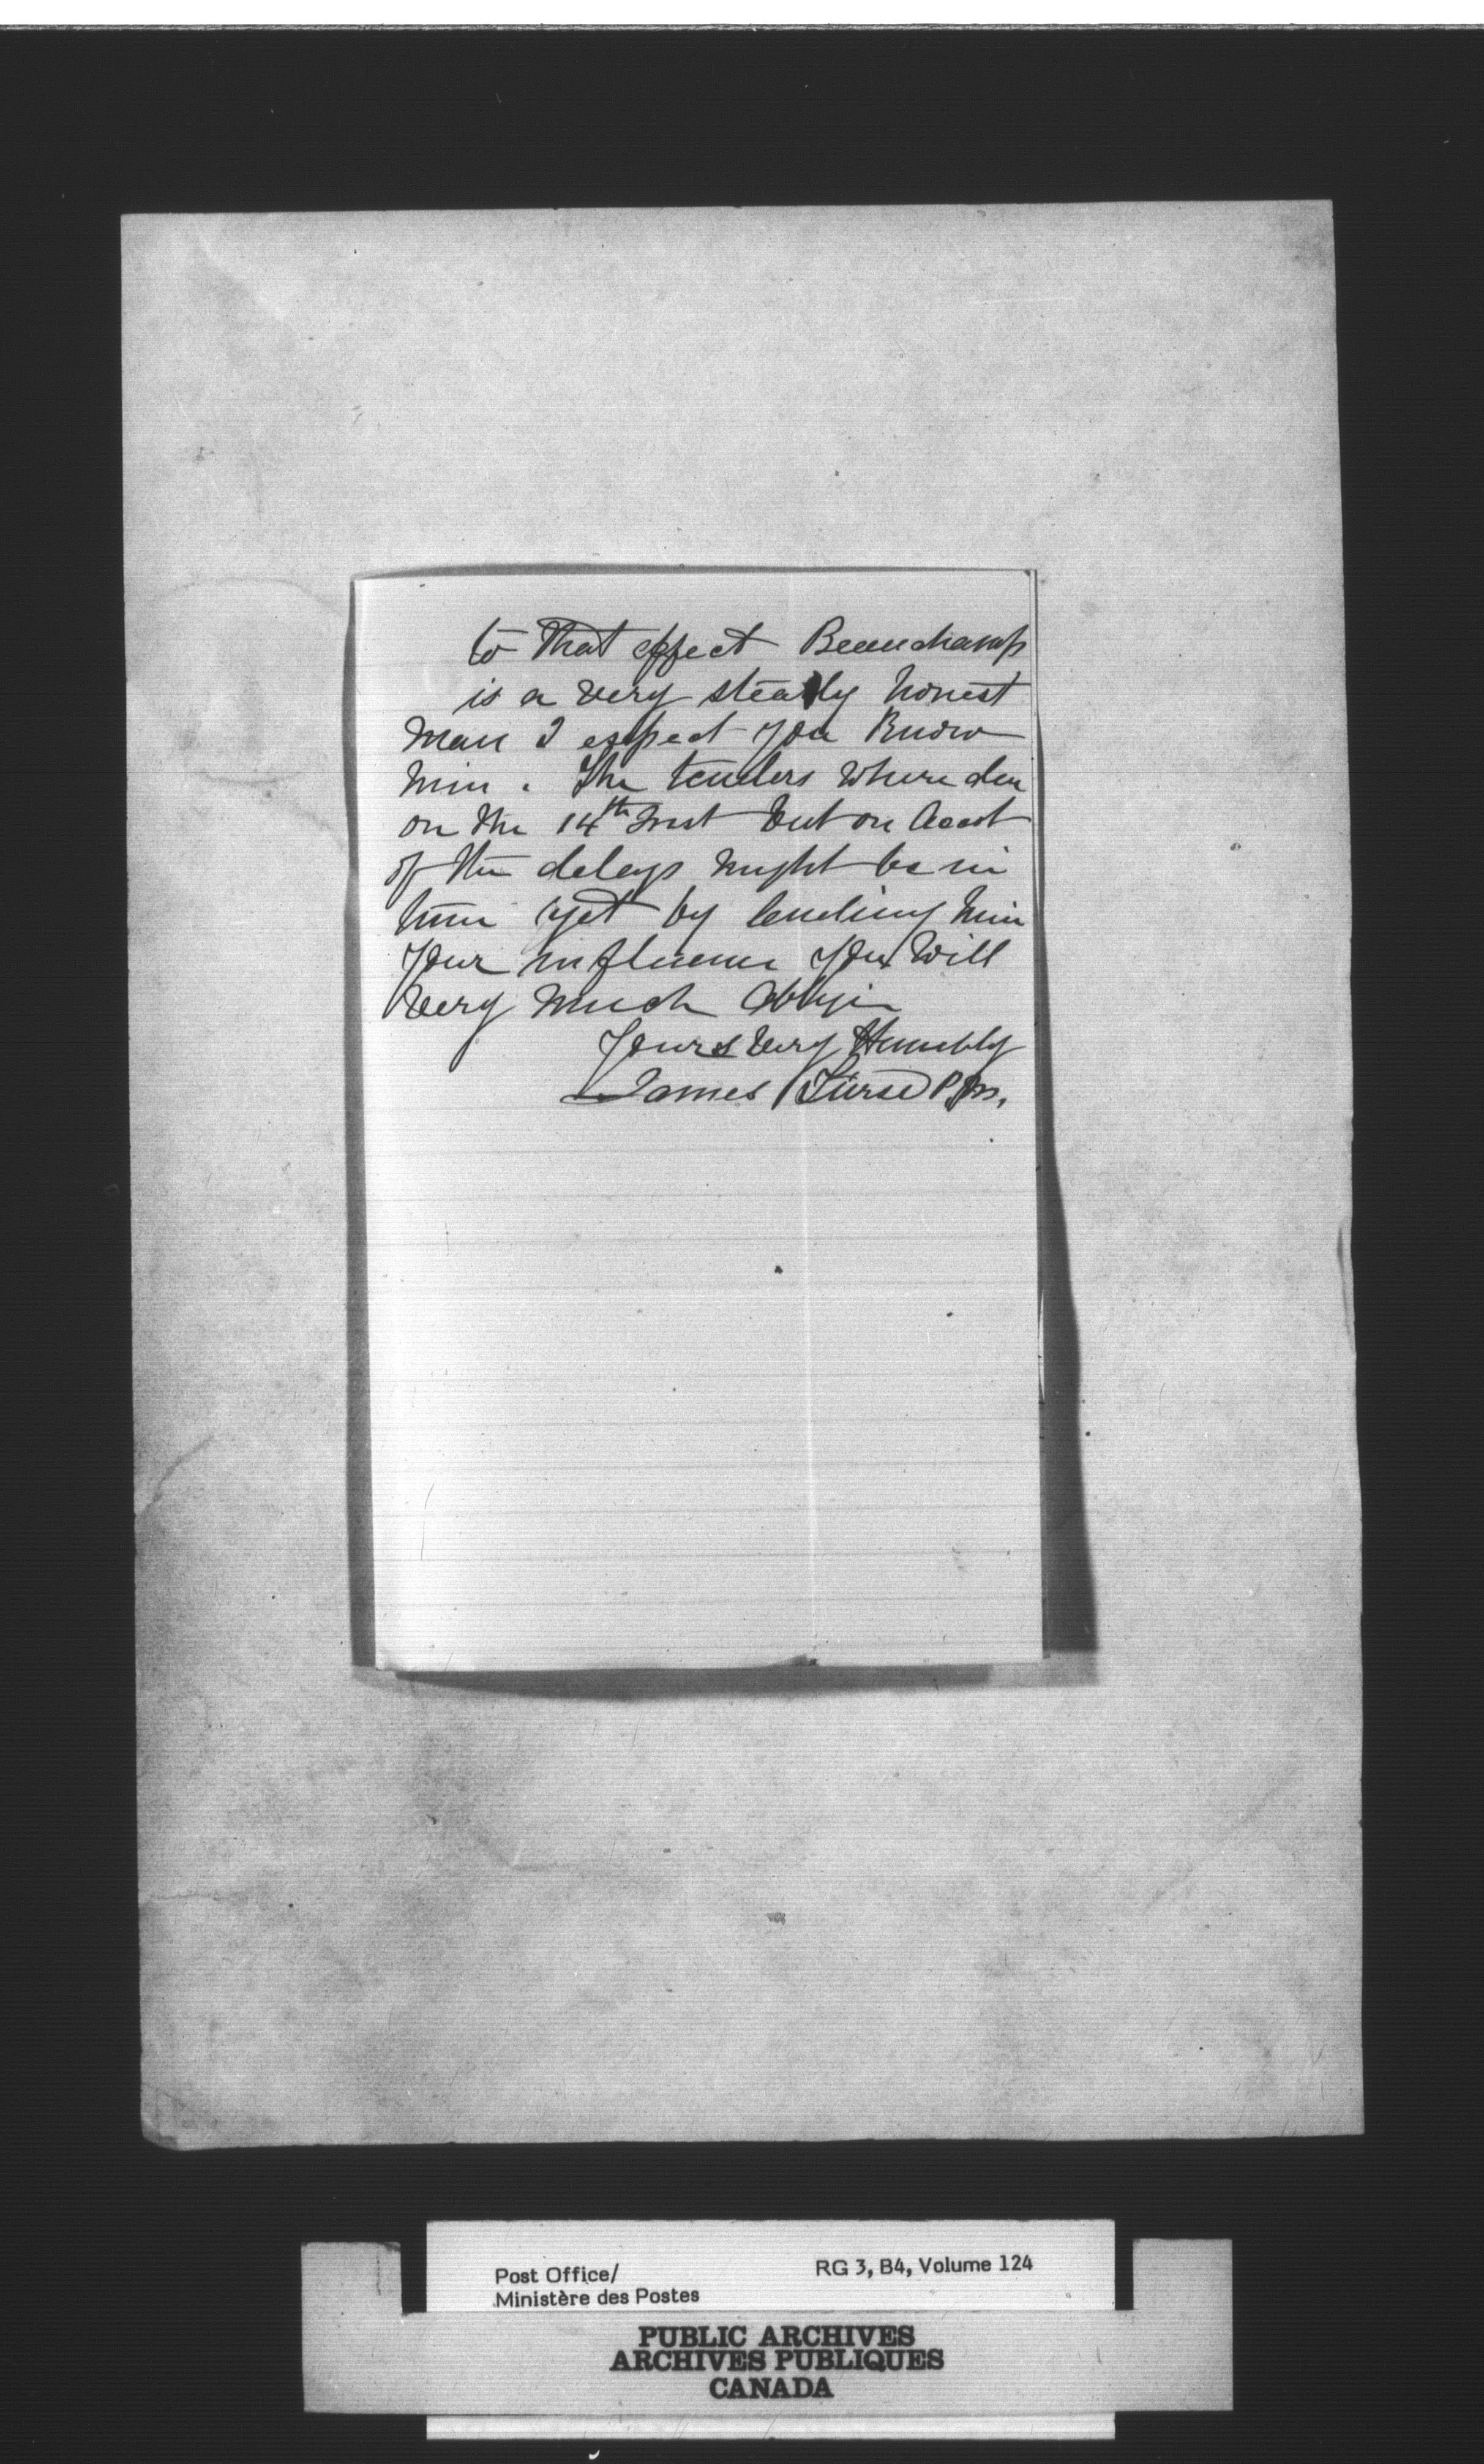 to That effect Beauchamp
is a very steady honest
man I expect you Know
him. The tenders where due
on the 14th Inst but on Acct
of the delays might be in
time yet by lending him
your influence you Will
very much oblige
Yours very Humbly
James P.M.
Post Office/
Ministère des Postes
RG 3, B4, Volume 124
PUBLIC ARCHIVES
ARCHIVES PUBLIQUES
CANADA